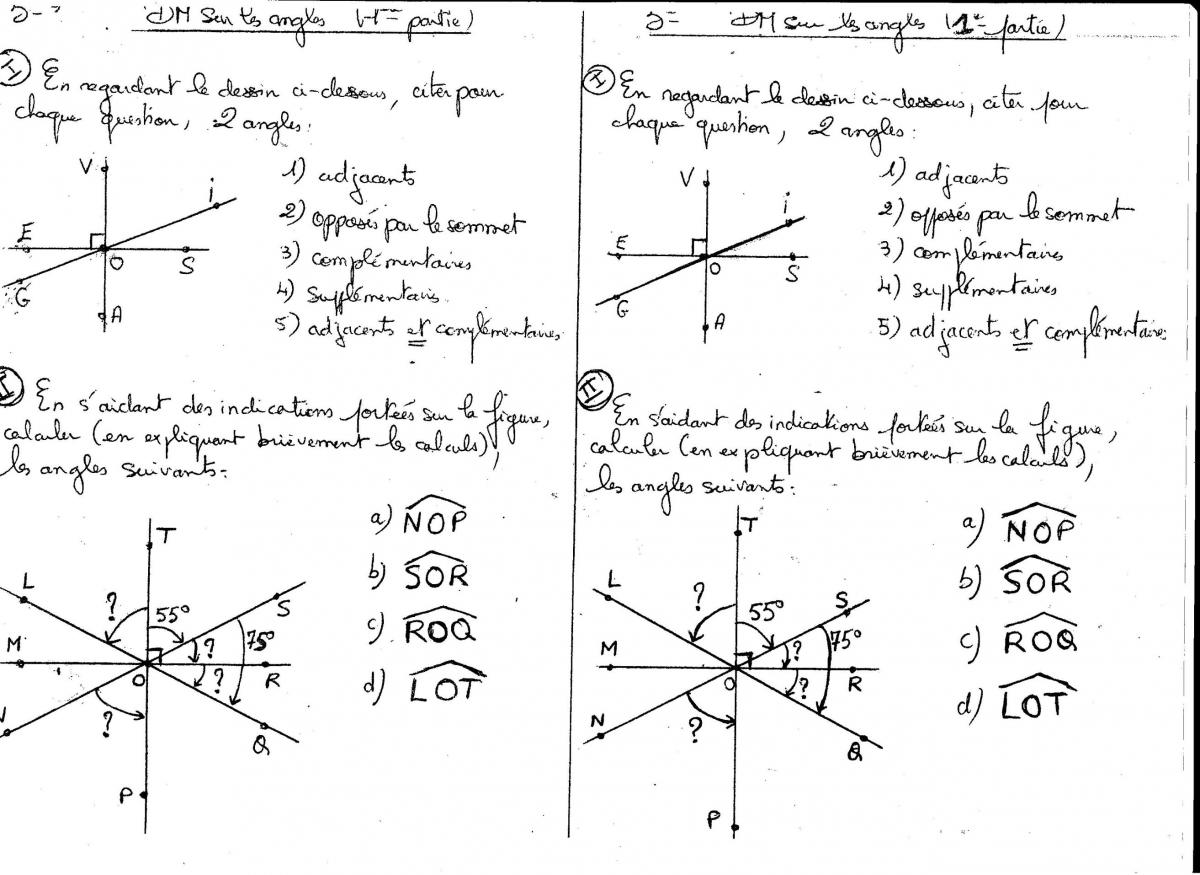 DM sur les angles (1ère partie)
I En regardant le dessin ci-dessous, citer pour
chaque question, 2 angles:
1) adjacents
2) opposés par le sommet
3) complémentaires
4) supplémentaires
5) adjacents et complémentaires
V
i
E
O
S
G
A
II En s'aidant des indications portées sur la figure,
calculer (en expliquant brièvement les calculs),
les angles suivants:
a) NOP
b) SOR
c) ROQ
d) LOT
T
L
?
55°
S
M
?
75°
O
?
R
?
Q
P
DM sur les angles (1e partie)
I En regardant le dessin ci-dessous, citer pour
chaque question, 2 angles:
1) adjacents
2) opposés par le sommet
3) complémentaires
4) supplémentaires
5) adjacents et complémentaires
V
i
E
O
S
G
A
II En s'aidant des indications portées sur la figure,
calculer (en expliquant brièvement les calculs),
les angles suivants:
a) NOP
b) SOR
c) ROQ
d) LOT
T
L
?
55°
S
M
?
75°
O
?
R
N
?
Q
P